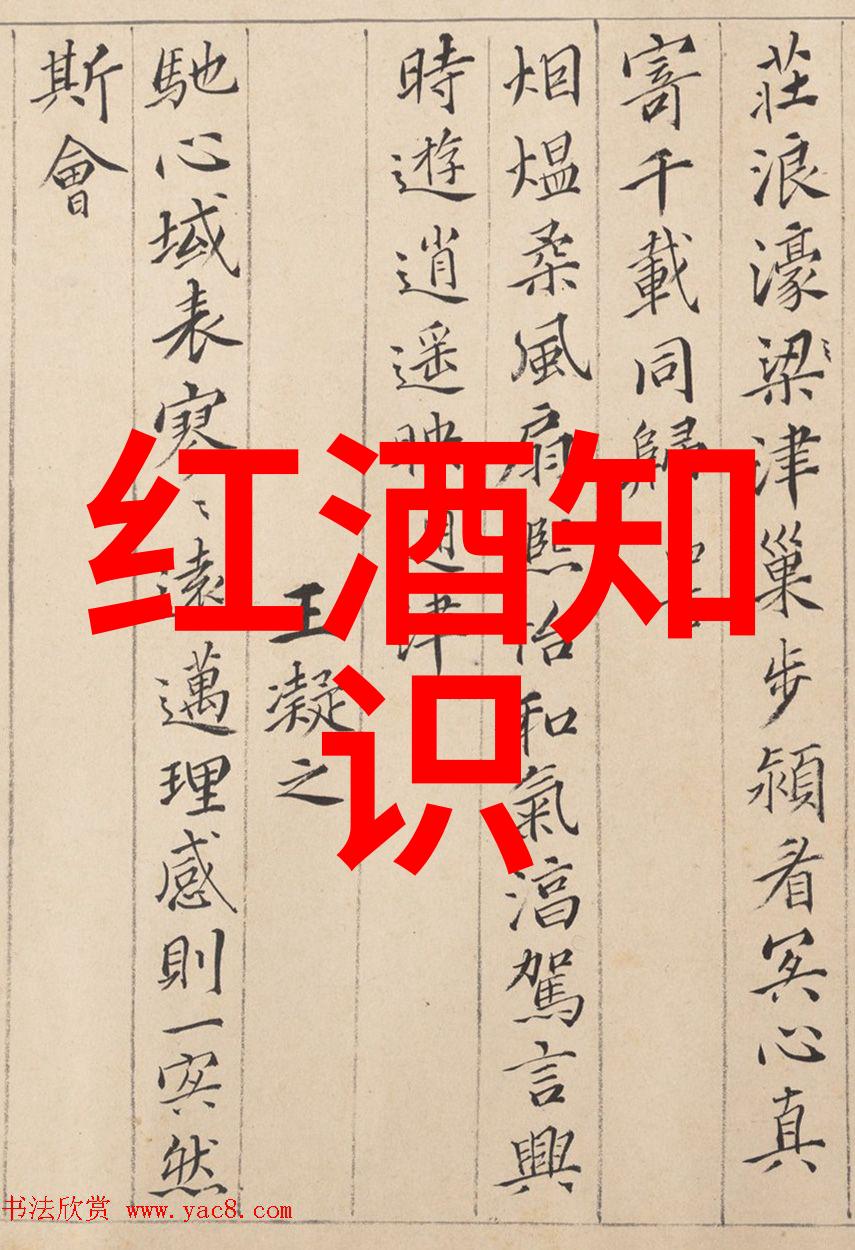 莊浪濠梁津巢步潁冥心真
寄千載同歸
烟熅柔風扇熙怡和氣駕言興
時遊逍遥映通津
王凝之
馳心域表寥〻遠邁理感則一冥然
斯會
红酒知
识
书法欣赏 www.yac8.com